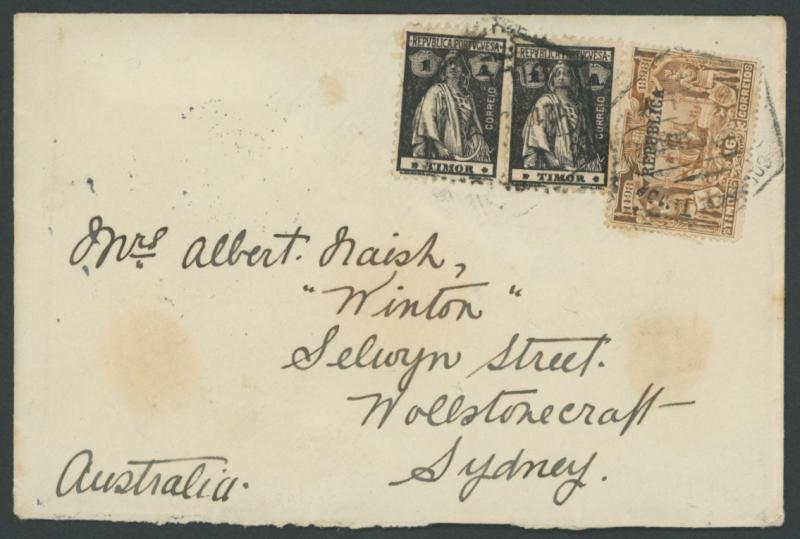 REPVBLICA PORTVGVESA
1 A
CORREIO
TIMOR
REPVBLICA PORTVGVESA
1 A
CORREIO
TIMOR
1498 1898
REPUBLICA
TIMOR
CORREIOS
Mrs Albert. Naish,
"Winton"
Selwyn Street.
Wollstonecraft
Sydney.
Australia.